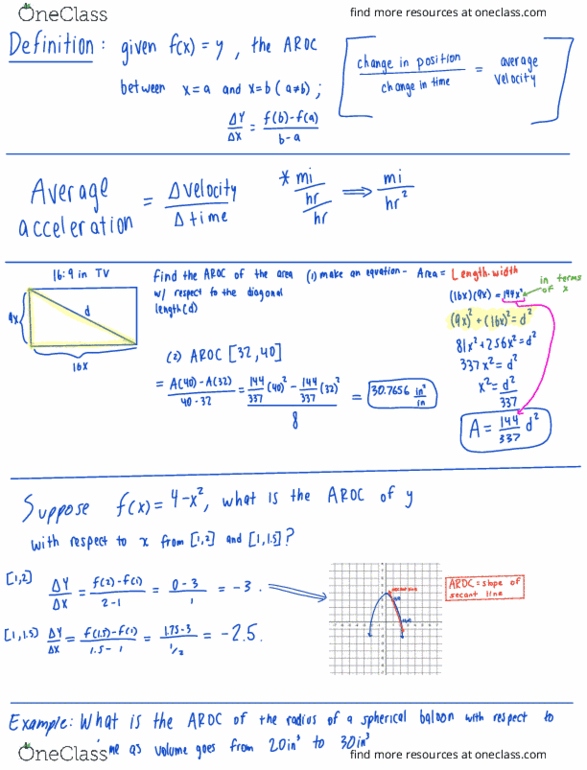 OneClass
find more resources at oneclass.com
Definition: given f(x) = y, the AROC
between x=a and x=b (a≠b);
ΔY/ΔX = f(b)-f(a)/b-a
change in position/change in time = average velocity
Average acceleration = Δvelocity/Δtime
* mi/hr/hr ⟹ mi/hr²
16:9 in TV
9x
d
16x
find the AROC of the area
w/ respect to the diagonal
length (d)
(1) make an equation - Area = Length·width
(16x)(9x) = 144x²
in terms of x
(9x)² + (16x)² = d²
81x² + 256x² = d²
337x² = d²
x² = d²/337
A = 144/337 d²
(2) AROC [32,40]
= A(40)-A(32)/40-32 = 144/337 (40)² - 144/337 (32)²/8 = 30.7656 in²/in
Suppose f(x) = 4-x², what is the AROC of y
with respect to x from [1,2] and [1,1.5]?
[1,2] ΔY/ΔX = f(2)-f(1)/2-1 = 0-3/1 = -3.
AROC = slope of
secant line
[1,1.5] ΔY/ΔX = f(1.5)-f(1)/1.5-1 = 1.75-3/½ = -2.5.
Example: What is the AROC of the radius of a spherical baloon with respect to
as volume goes from 20in³ to 30in³
OneClass
find more resources at oneclass.com